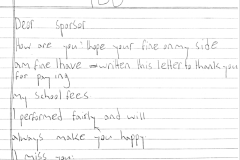 Dear Sponsor
How are you? hope your fine on my side
am fine I have written this letter to thank you
for paying
my school fees
I performed fairly and will
always make you happy
I miss you